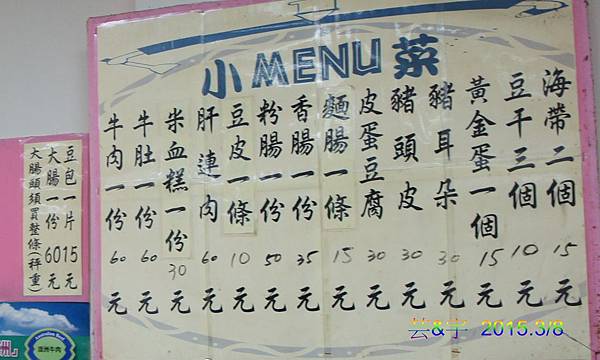 小MENU菜
海帶二個 15元
豆干三個 10元
黃金蛋一個 15元
豬耳朵 30元
豬頭皮 30元
皮蛋豆腐 30元
麵腸一條 15元
香腸一份 35元
粉腸一份 50元
豆皮一條 10元
肝連肉 60元
米血糕一份 30元
牛肚一份 60元
牛肉一份 60元
豆包一片15元
大腸一份60元
大腸頭須買整條(秤重)
洲
澳洲牛肉
芸&宇 2015.3/8